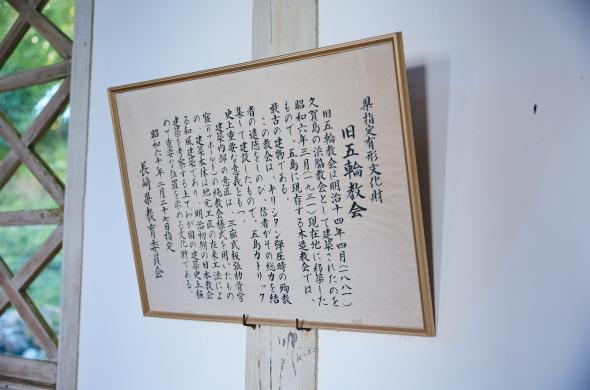 県指定有形文化財
旧五輪教会
旧五輪教会は明治十四年四月(一八八一)
久賀島の浜脇教会として建築されたのを
昭和六年三月(一九三一)現在地に移築した
もので、五島に現存する木造教会では、
最古の建物である。
この教会は、キリシタン弾圧時の殉教
者の遺徳をしのび、信者がその総力を結
集して建設したもので、五島カトリック
史上重要な意義をもつ。
建築内部の意匠は、三廊式板張肋骨穹
窿リヴ・ボールトの純教会様式を用いたもの
の、建築本体は地元工匠の在来工法によ
る和風建築であり、明治初期の日本教会
建築を考察する上で、わが国の建築史上極
めて重要な位置を示める文化財である。
昭和六十年二月二十七日指定
長崎県教育委員会